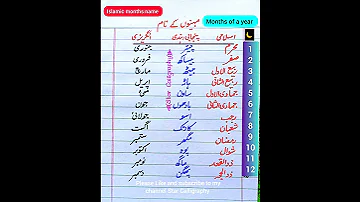 Islamic months name
Months of a year
مہینوں کے نام
اسلامی پنجابی ہندی انگریزی
محرم چیتر جنوری 1
صفر بیساکھ فروری 2
ربیع الاول جیٹھ مارچ 3
ربیع الثانی ہاڑ اپریل 4
جمادی الاول ساون مئی 5
جمادی الثانی بھادوں جون 6
رجب اسو جولائی 7
شعبان کاتک اگست 8
رمضان مگھر ستمبر 9
شوال پوہ اکتوبر 10
ذوالقعد ماگھ نومبر 11
ذوالحج پھگن دسمبر 12
Star Calligraphy
Please Like and subscribe to my
channel Star Calligraphy